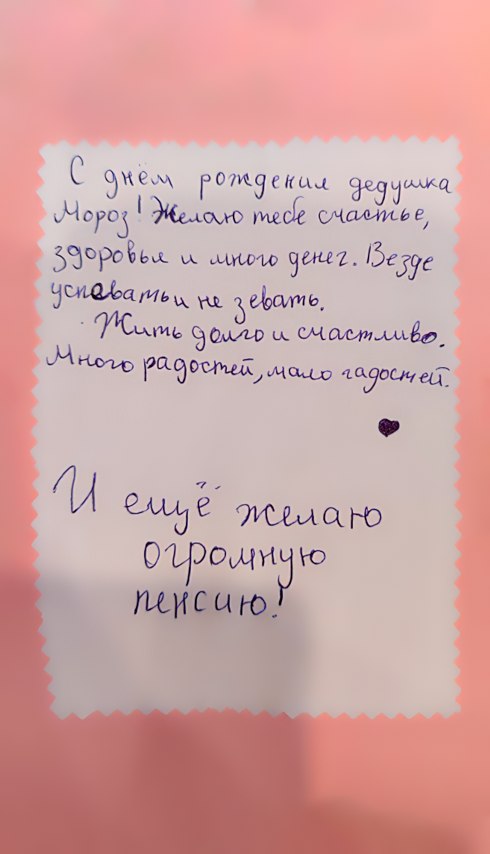 С днём рождения дедушка
Мороз! Желаю тебе счастье,
здоровья и много денег. Везде
успевать и не зевать.
Жить долго и счастливо.
Много радостей, мало гадостей.
И ещё желаю
огромную
пенсию!